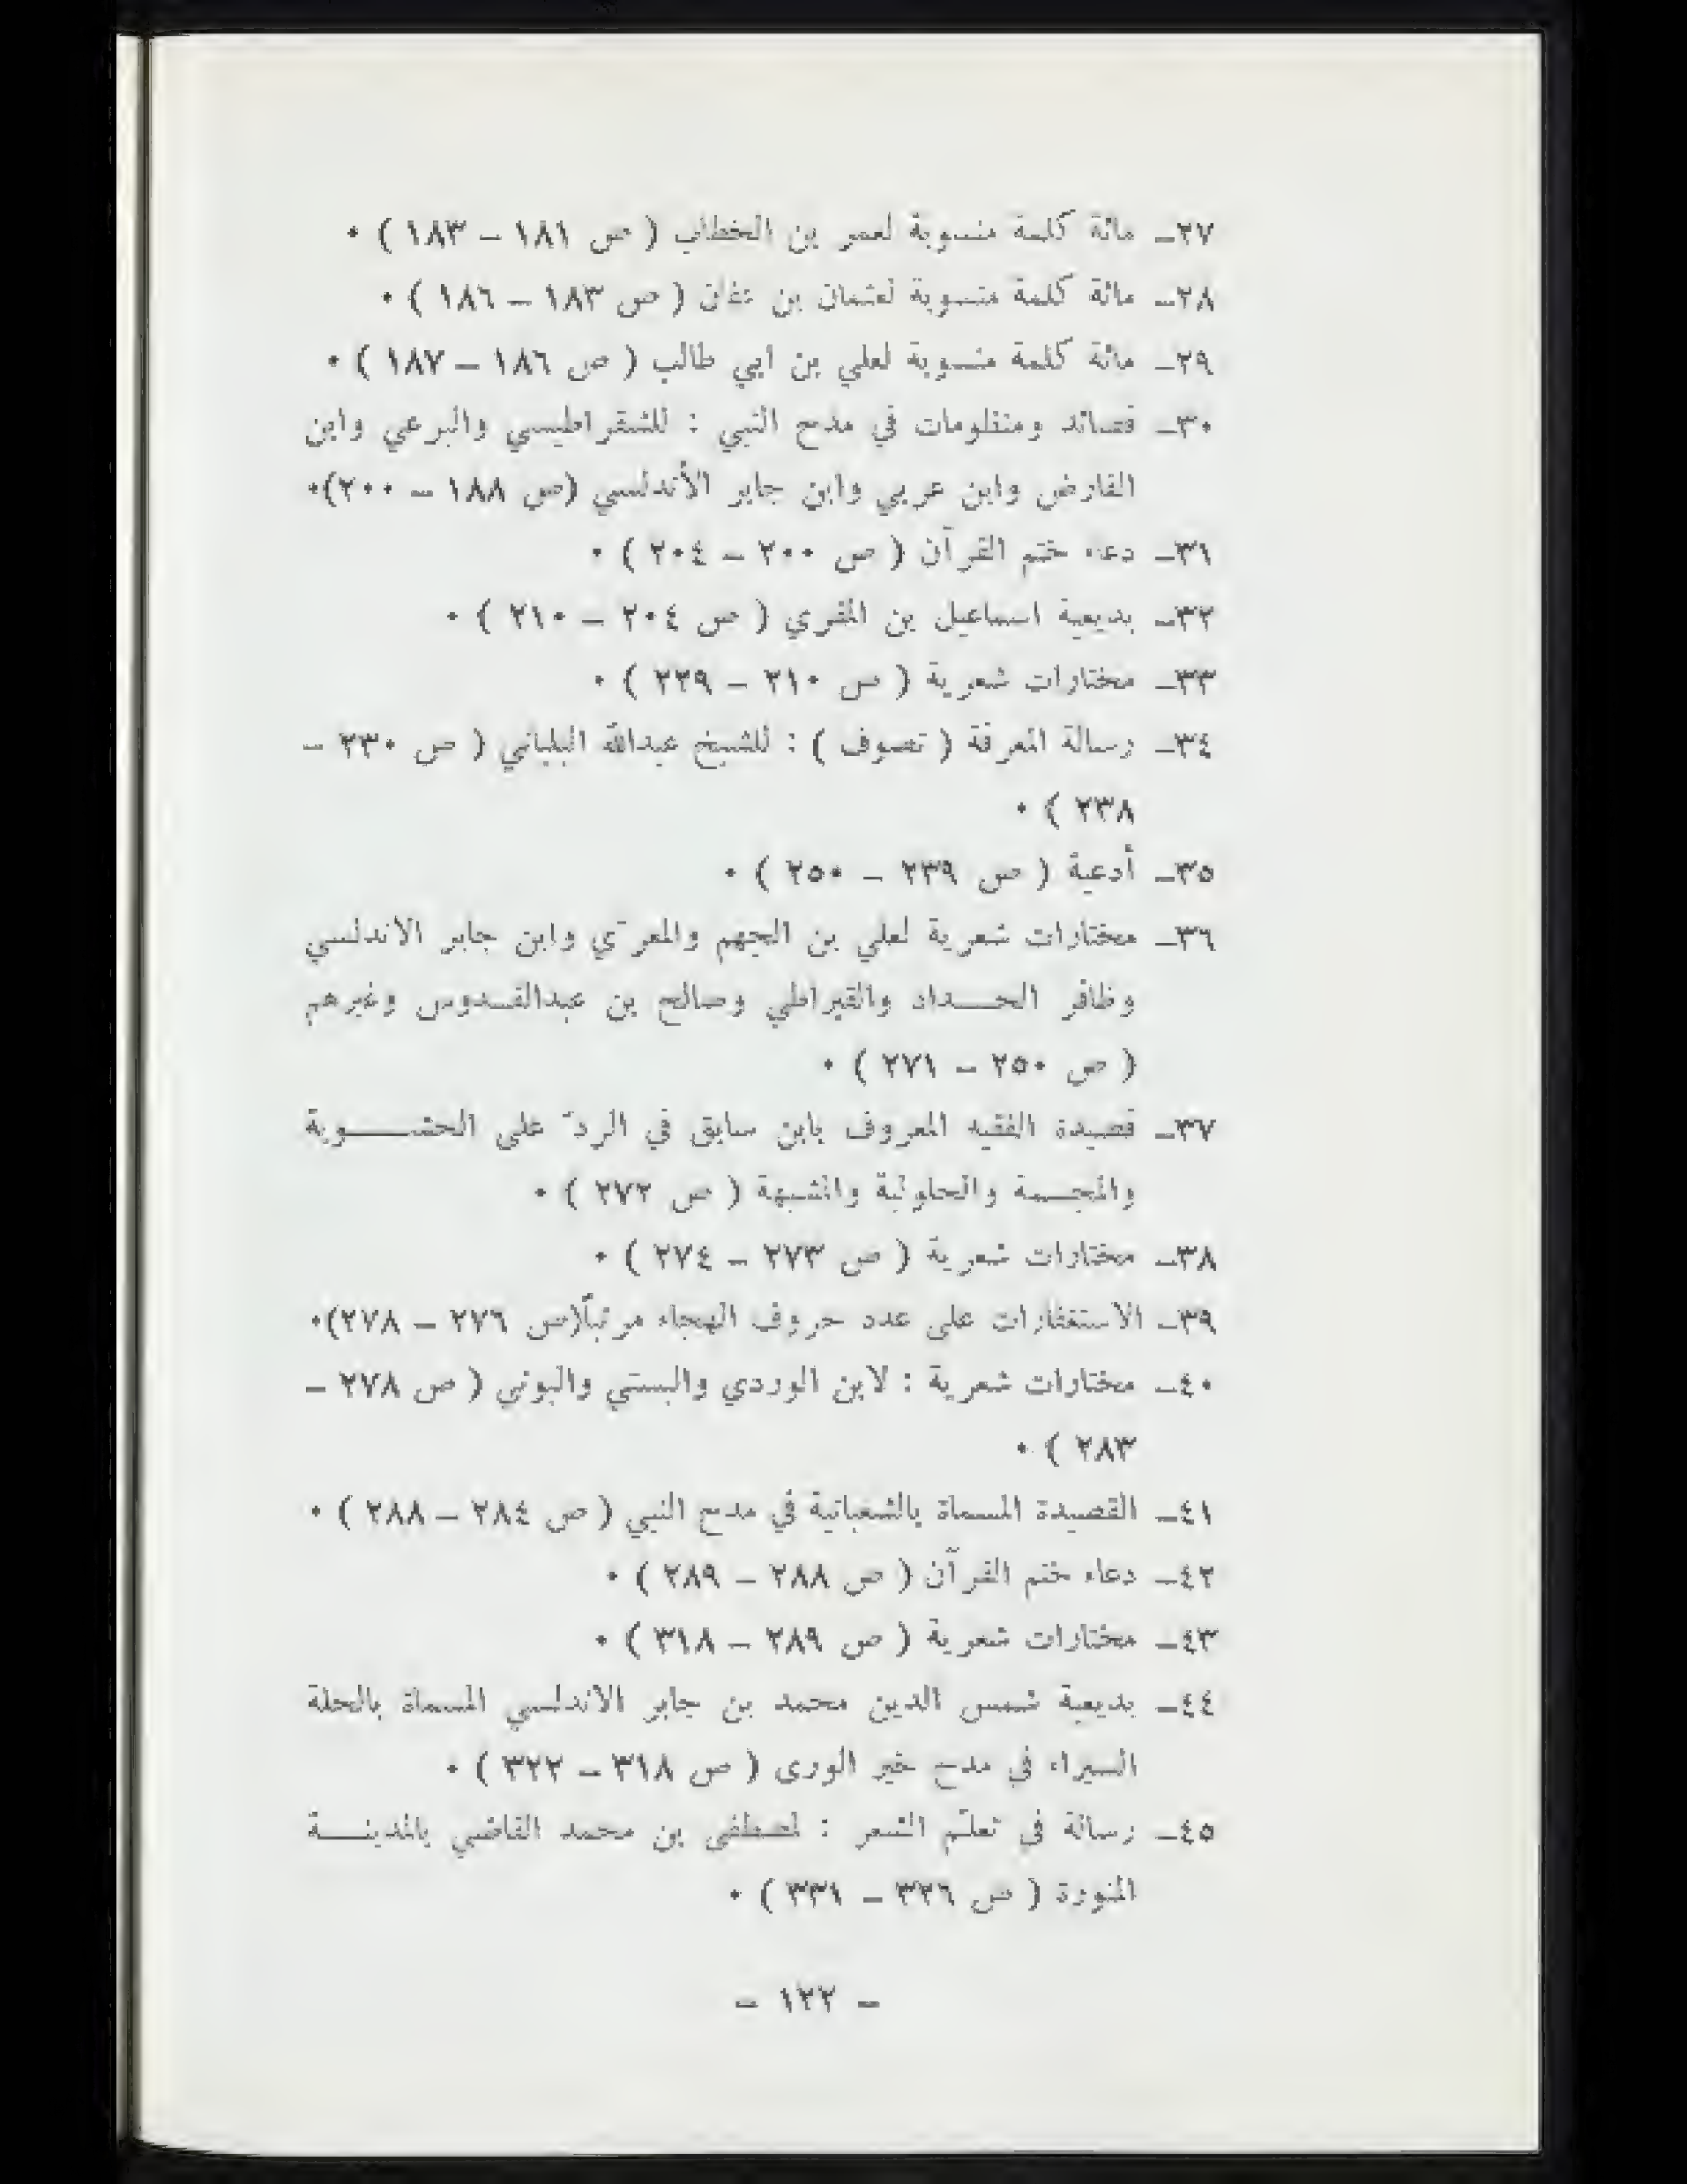 ٢٧ـ مائة كلمة منسوبة لعمر بن الخطاب ( ص ١٨١ – ١٨٣ ) ٠
٢٨ـ مائة كلمة منسوبة لعثمان بن عفان ( ص ١٨٣ – ١٨٦ ) ٠
٢٩ـ مائة كلمة منسوبة لعلي بن ابي طالب ( ص ١٨٦ – ١٨٧ ) ٠
٣٠ـ قصائد ومنظومات في مدح النبي : للشقراطيسي والبرعي وابن
الفارض وابن عربي وابن جابر الأندلسي (ص ١٨٨ – ٢٠٠)٠
٣١ـ دعاء ختم القرآن ( ص ٢٠٠ – ٢٠٤ ) ٠
٣٢ـ بديعية اسماعيل بن المقري ( ص ٢٠٤ – ٢١٠ ) ٠
٣٣ـ مختارات شعرية ( ص ٢١٠ – ٢٢٩ ) ٠
٣٤ـ رسالة المعرفة ( تصوف ) : للشيخ عبدالله البلباني ( ص ٢٣٠ –
٢٣٨ ) ٠
٣٥ـ أدعية ( ص ٢٣٩ – ٢٥٠ ) ٠
٣٦ـ مختارات شعرية لعلي بن الجهم والمعرّي وابن جابر الاندلسي
وظافر الحـــداد والقيراطي وصالح بن عبدالقـدوس وغيرهم
( ص ٢٥٠ – ٢٧١ ) ٠
٣٧ـ قصيدة الفقيه المعروف بابن سابق في الردّ على الحشـــــوية
والمجسمة والحلولية والمشبهة ( ص ٢٧٢ ) ٠
٣٨ـ مختارات شعرية ( ص ٢٧٣ – ٢٧٤ ) ٠
٣٩ـ الاستغفارات على عدد حروف الهجاء مرتباً(ص ٢٧٦ – ٢٧٨)٠
٤٠ـ مختارات شعرية : لابن الوردي والبستي والبوني ( ص ٢٧٨ –
٢٨٣ ) ٠
٤١ـ القصيدة المسماة بالشعبانية في مدح النبي ( ص ٢٨٤ – ٢٨٨ ) ٠
٤٢ـ دعاء ختم القرآن ( ص ٢٨٨ – ٢٨٩ ) ٠
٤٣ـ مختارات شعرية ( ص ٢٨٩ – ٣١٨ ) ٠
٤٤ـ بديعية شمس الدين محمد بن جابر الاندلسي المسماة بالحلة
السيراء في مدح خير الورى ( ص ٣١٨ – ٣٢٢ ) ٠
٤٥ـ رسالة في تعلّم الشعر : لمصطفى بن محمد القاضي بالمدينـــة
المنورة ( ص ٣٢٦ – ٣٣١ ) ٠
– ١٢٢ –